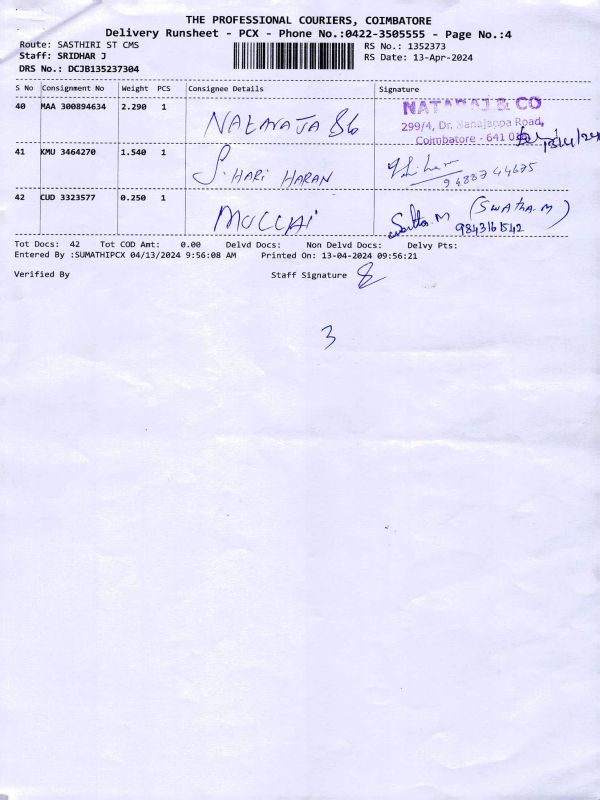 THE PROFESSIONAL COURIERS, COIMBATORE
Delivery Runsheet - PCX - Phone No.:0422-3505555 - Page No.:4
Route: SASTHIRI ST CMS
RS No.: 1352373
Staff: SRIDHAR J
RS Date: 13-Apr-2024
DRS No.: DCJB135237304
S No Consignment No Weight PCS Consignee Details Signature
40 MAA 300894634 2.290 1
NATARAJ & CO
299/4, Dr. Nanajappa Road,
Coimbatore - 641 0
41 KMU 3464270 1.540 1 S. HARI HARAN
9488744675
42 CUD 3323577 0.250 1 MULLAI
Swatha.M (SWATHA.M)
9843161542
Tot Docs: 42 Tot COD Amt: 0.00 Delvd Docs: Non Delvd Docs: Delvy Pts:
Entered By :SUMATHIPCX 04/13/2024 9:56:08 AM Printed On: 13-04-2024 09:56:21
Verified By Staff Signature
3